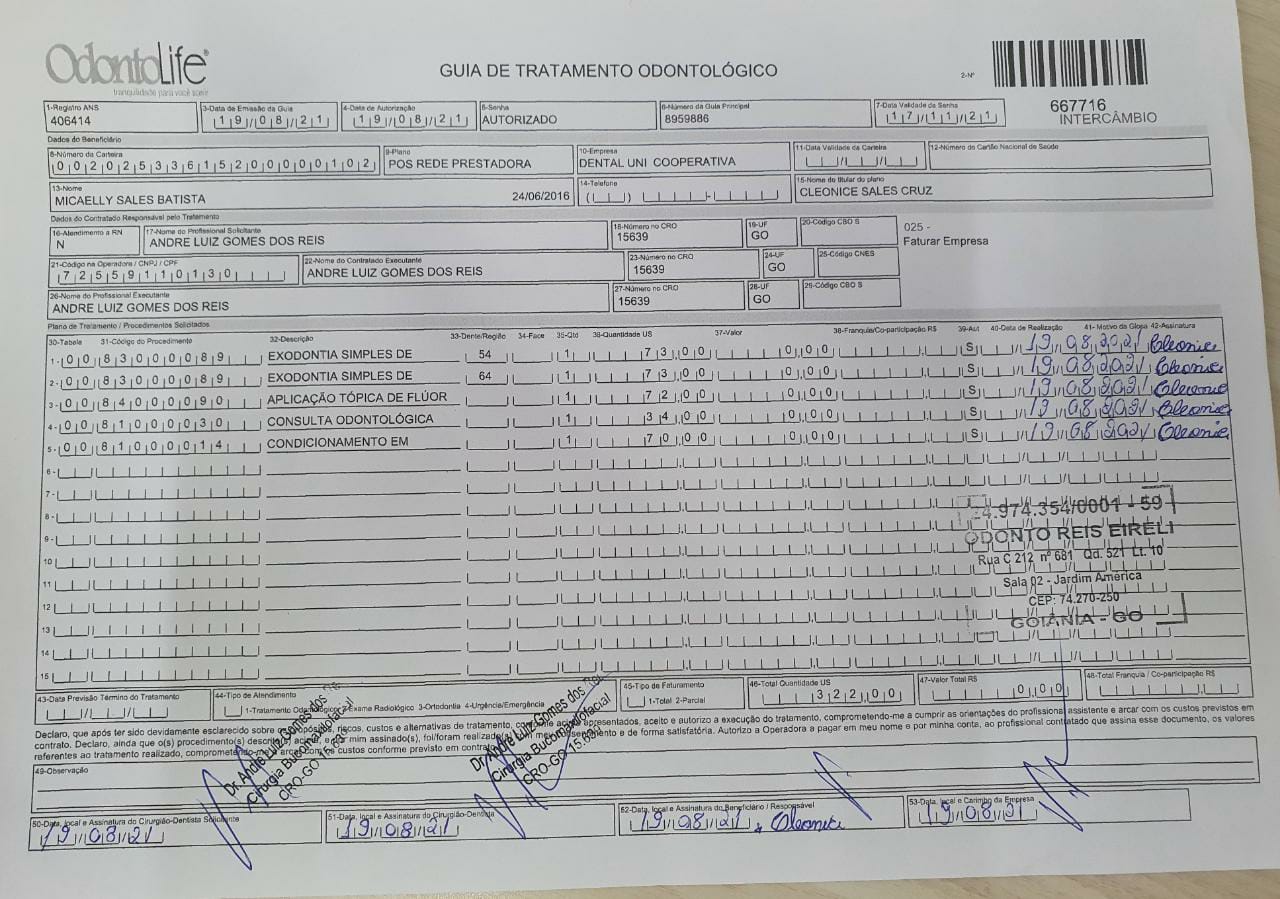 OdontoLife®
tranquilidade para você sorrir
GUIA DE TRATAMENTO ODONTOLÓGICO
2-Nº
667716
INTERCÂMBIO
1-Registro ANS
406414
3-Data de Emissão da Guia
19/08/21
4-Data de Autorização
19/08/21
5-Senha
AUTORIZADO
6-Número da Guia Principal
8959886
7-Data Validade da Senha
17/11/21
Dados do Beneficiário
8-Número da Carteira
00202533615200000102
9-Plano
POS REDE PRESTADORA
10-Empresa
DENTAL UNI COOPERATIVA
11-Data Validade da Carteira
12-Número do Cartão Nacional de Saúde
13-Nome
MICAELLY SALES BATISTA 24/06/2016
14-Telefone
15-Nome do titular do plano
CLEONICE SALES CRUZ
Dados do Contratado Responsável pelo Tratamento
16-Atendimento a RN
N
17-Nome do Profissional Solicitante
ANDRE LUIZ GOMES DOS REIS
18-Número no CRO
15639
19-UF
GO
20-Código CBO S
025 -
Faturar Empresa
21-Código na Operadora / CNPJ / CPF
72559110130
22-Nome do Contratado Executante
ANDRE LUIZ GOMES DOS REIS
23-Número no CRO
15639
24-UF
GO
25-Código CNES
26-Nome do Profissional Executante
ANDRE LUIZ GOMES DOS REIS
27-Número no CRO
15639
28-UF
GO
29-Código CBO S
Plano de Tratamento / Procedimentos Solicitados
30-Tabela 31-Código do Procedimento 32-Descrição 33-Dente/Região 34-Face 35-Qtd 36-Quantidade US 37-Valor 38-Franquia/Co-participação R$ 39-Aut 40-Data de Realização 41- Motivo da Glosa 42-Assinatura
1- 00 83000089 EXODONTIA SIMPLES DE 54 1 73,00 0,00 S 19/08/2021 Cleonice
2- 00 83000089 EXODONTIA SIMPLES DE 64 1 73,00 0,00 S 19/08/2021 Cleonice
3- 00 84000090 APLICAÇÃO TÓPICA DE FLÚOR 1 72,00 0,00 S 19/08/2021 Cleonice
4- 00 81000030 CONSULTA ODONTOLÓGICA 1 34,00 0,00 S 19/08/2021 Cleonice
5- 00 81000014 CONDICIONAMENTO EM 1 70,00 0,00 S 19/08/2021 Cleonice
6-
7-
8-
9-
10
11
12
13
14
15
24.974.354/0001 - 59
ODONTO REIS EIRELI
Rua C 212 nº 681 Qd. 521 Lt. 10
Sala 02 - Jardim América
CEP: 74.270-250
GOIÂNIA - GO
43-Data Previsão Término do Tratamento
44-Tipo de Atendimento
1-Tratamento Odontológico 2-Exame Radiológico 3-Ortodontia 4-Urgência/Emergência
45-Tipo de Faturamento
1-Total 2-Parcial
46-Total Quantidade US
322,00
47-Valor Total R$
0,00
48-Total Franquia / Co-participação R$
Declaro, que após ter sido devidamente esclarecido sobre os propósitos, riscos, custos e alternativas de tratamento, conforme acima apresentados, aceito e autorizo a execução do tratamento, comprometendo-me a cumprir as orientações do profissional assistente e arcar com os custos previstos em
contrato. Declaro, ainda que o(s) procedimento(s) descrito(s) acima, e por mim assinado(s), foi/foram realizado(s) com meu consentimento e de forma satisfatória. Autorizo a Operadora a pagar em meu nome e por minha conta, ao profissional contratado que assina esse documento, os valores
referentes ao tratamento realizado, comprometendo-me a arcar com os custos conforme previsto em contrato.
49-Observação
Dr. André Luiz Gomes dos Reis
Cirurgia Bucomaxilofacial
CRO-GO 15.639
Dr. André Luiz Gomes dos Reis
Cirurgia Bucomaxilofacial
CRO-GO 15.639
50-Data, local e Assinatura do Cirurgião-Dentista Solicitante
19/08/21
51-Data, local e Assinatura do Cirurgião-Dentista
19/08/21
52-Data, local e Assinatura do Beneficiário / Responsável
19/08/21 Cleonice
53-Data, local e Carimbo da Empresa
19/08/21